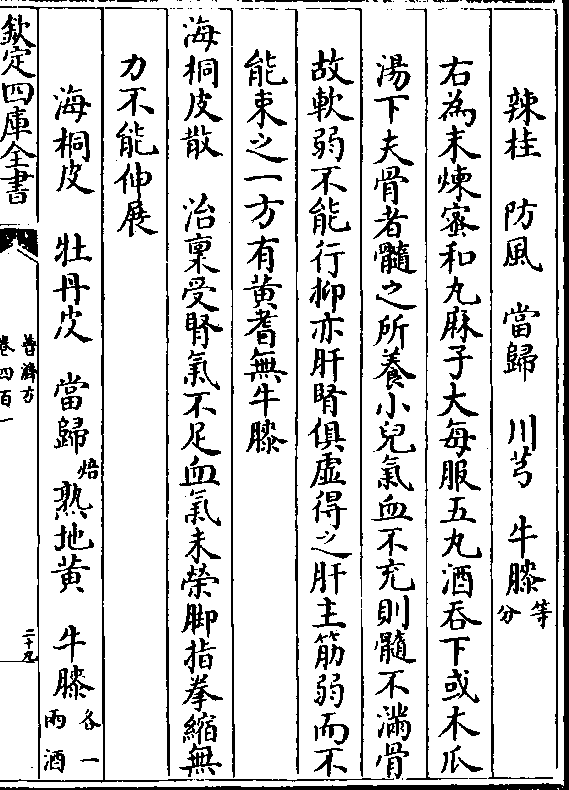 辣桂　防風　當歸　川芎　牛膝等分
右為末煉蜜和丸麻子大每服五丸酒吞下或木瓜
湯下夫骨者髓之所養小兒氣血不充則髓不滿骨
故軟弱不能行抑亦肝腎俱虛得之肝主筋弱而不
能束之一方有黃耆無牛膝
海桐皮散　治稟受腎氣不足血氣未榮脚指拳縮無
力不能伸展
海桐皮　牡丹皮　當歸焙　熟地黃　牛膝各一兩酒
欽定四庫全書
普濟方
卷四百一
二十九